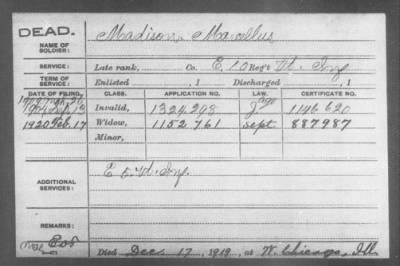 DEAD.
NAME OF SOLDIER: Madison, Marcellus
SERVICE: Late rank, Co. E, 10 Reg't Vt. Inf.
TERM OF SERVICE: Enlisted , 1 Discharged , 1
DATE OF FILING. CLASS. APPLICATION NO. LAW. CERTIFICATE NO.
Invalid, 1324298 1146620
1920 Feb. 17 Widow, 1152761 Sept. 887987
Minor,
ADDITIONAL SERVICES: E 5. Vt. Inf.
REMARKS:
Died Dec 17, 1919, at W. Chicago, Ill.